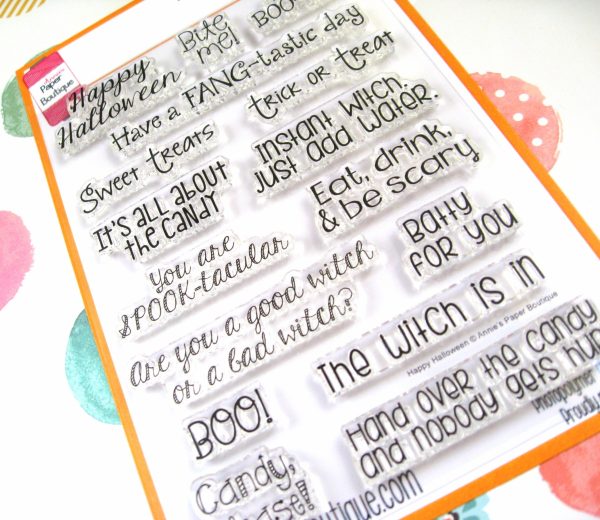 Paper
Boutique
Happy
Halloween
Bite
me!
BOO
Have a FANG-tastic day
Sweet treats
trick or treat
It's all about
the candy
Instant witch,
just add water.
Eat, drink,
& be scary
You are
SPOOK-tacular
Batty
for you
Are you a good witch
or a bad witch?
The witch is in
Happy Halloween © Annie's Paper Boutique
BOO!
Hand over the candy
and nobody gets
Candy,
Proudly
outique.com